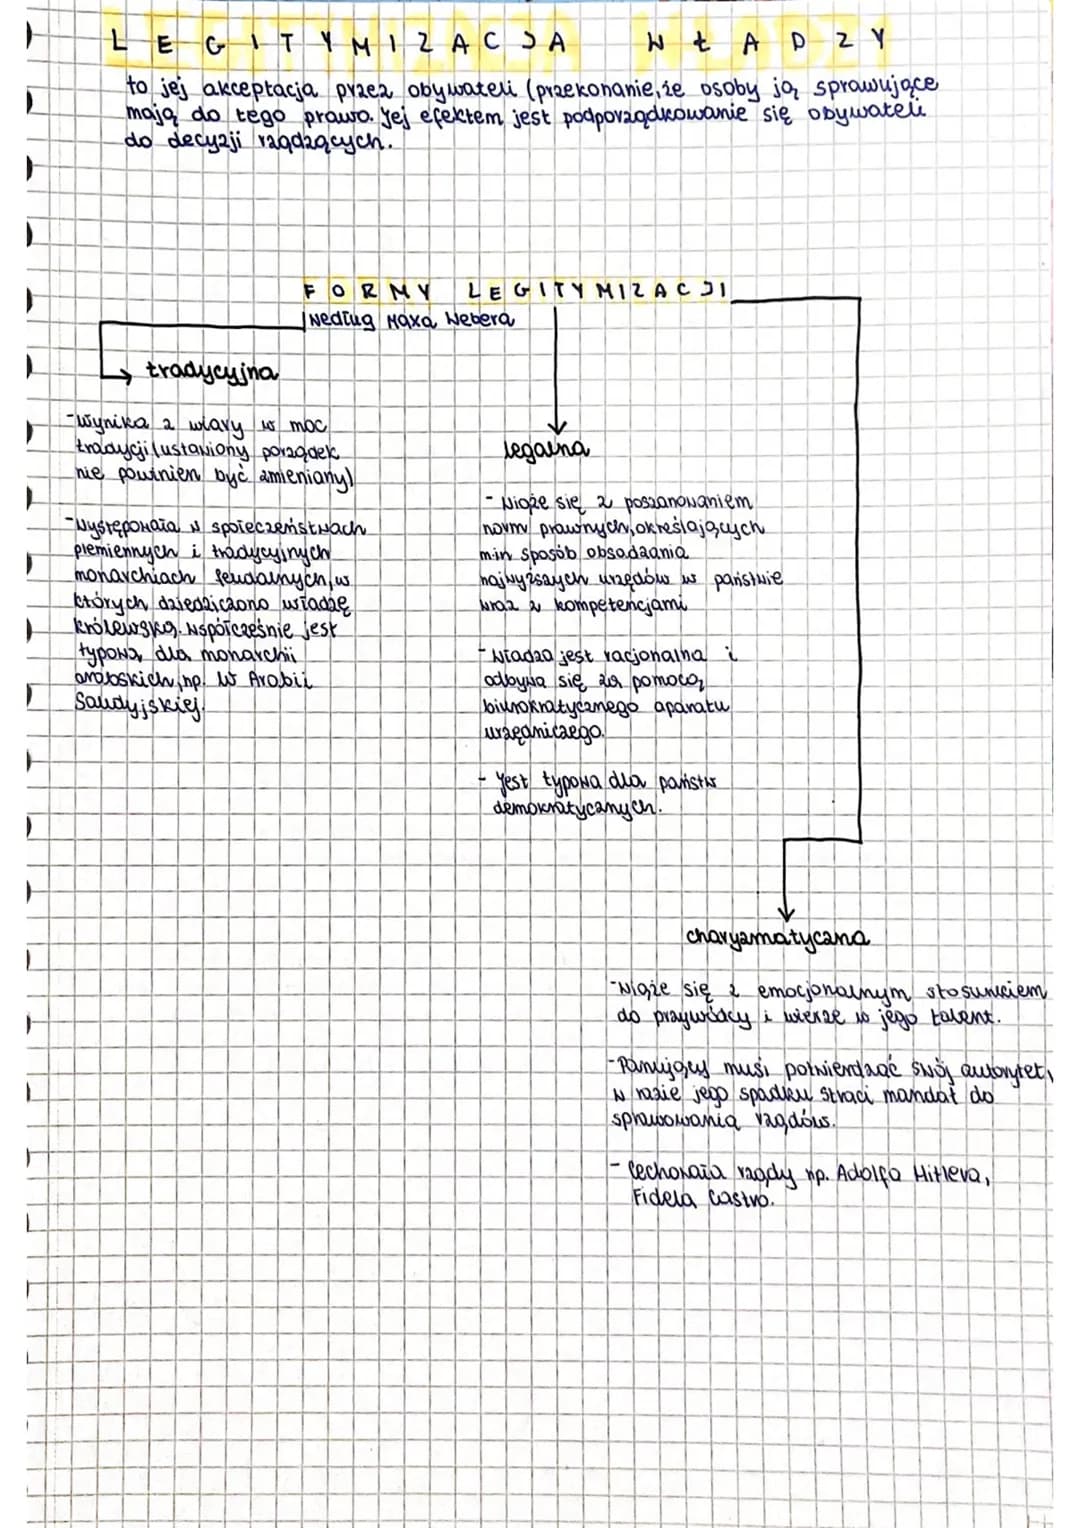 LEGITYMIZACJA WŁADZY
to jej akceptacja przez obywateli (przekonanie, że osoby ją sprawujące
mają do tego prawo. Jej efektem jest podporządkowanie się obywateli
do decyzji rządzących.
FORMY LEGITYMIZACJI
Według Maxa Webera
tradycyjna
-Wynika z wiary w moc
tradycji (ustawiony porządek
nie powinien być zmieniany)
-Występowała w społeczeństwach
plemiennych i tradycyjnych
monarchiach feudalnych, w
których dziedziczono władzę
królewską. Współcześnie jest
typowa dla monarchii
arabskich, np. w Arabii
Saudyjskiej.
legalna
- Wiąże się z poszanowaniem
norm prawnych, określających
min sposób obsadzania
najwyższych urzędów w państwie
wraz z kompetencjami
- Władza jest racjonalna i
odbywa się za pomocą
biurokratycznego aparatu
urzędniczego.
- Jest typowa dla państw
demokratycznych.
charyzmatyczna
-Wiąże się z emocjonalnym stosunkiem
do przywódcy i wierze w jego talent.
-Panujący musi potwierdzać swój autorytet,
w razie jego spadku straci mandat do
sprawowania rządów.
- Cechowała rządy np. Adolfa Hitlera,
Fidela Castro.